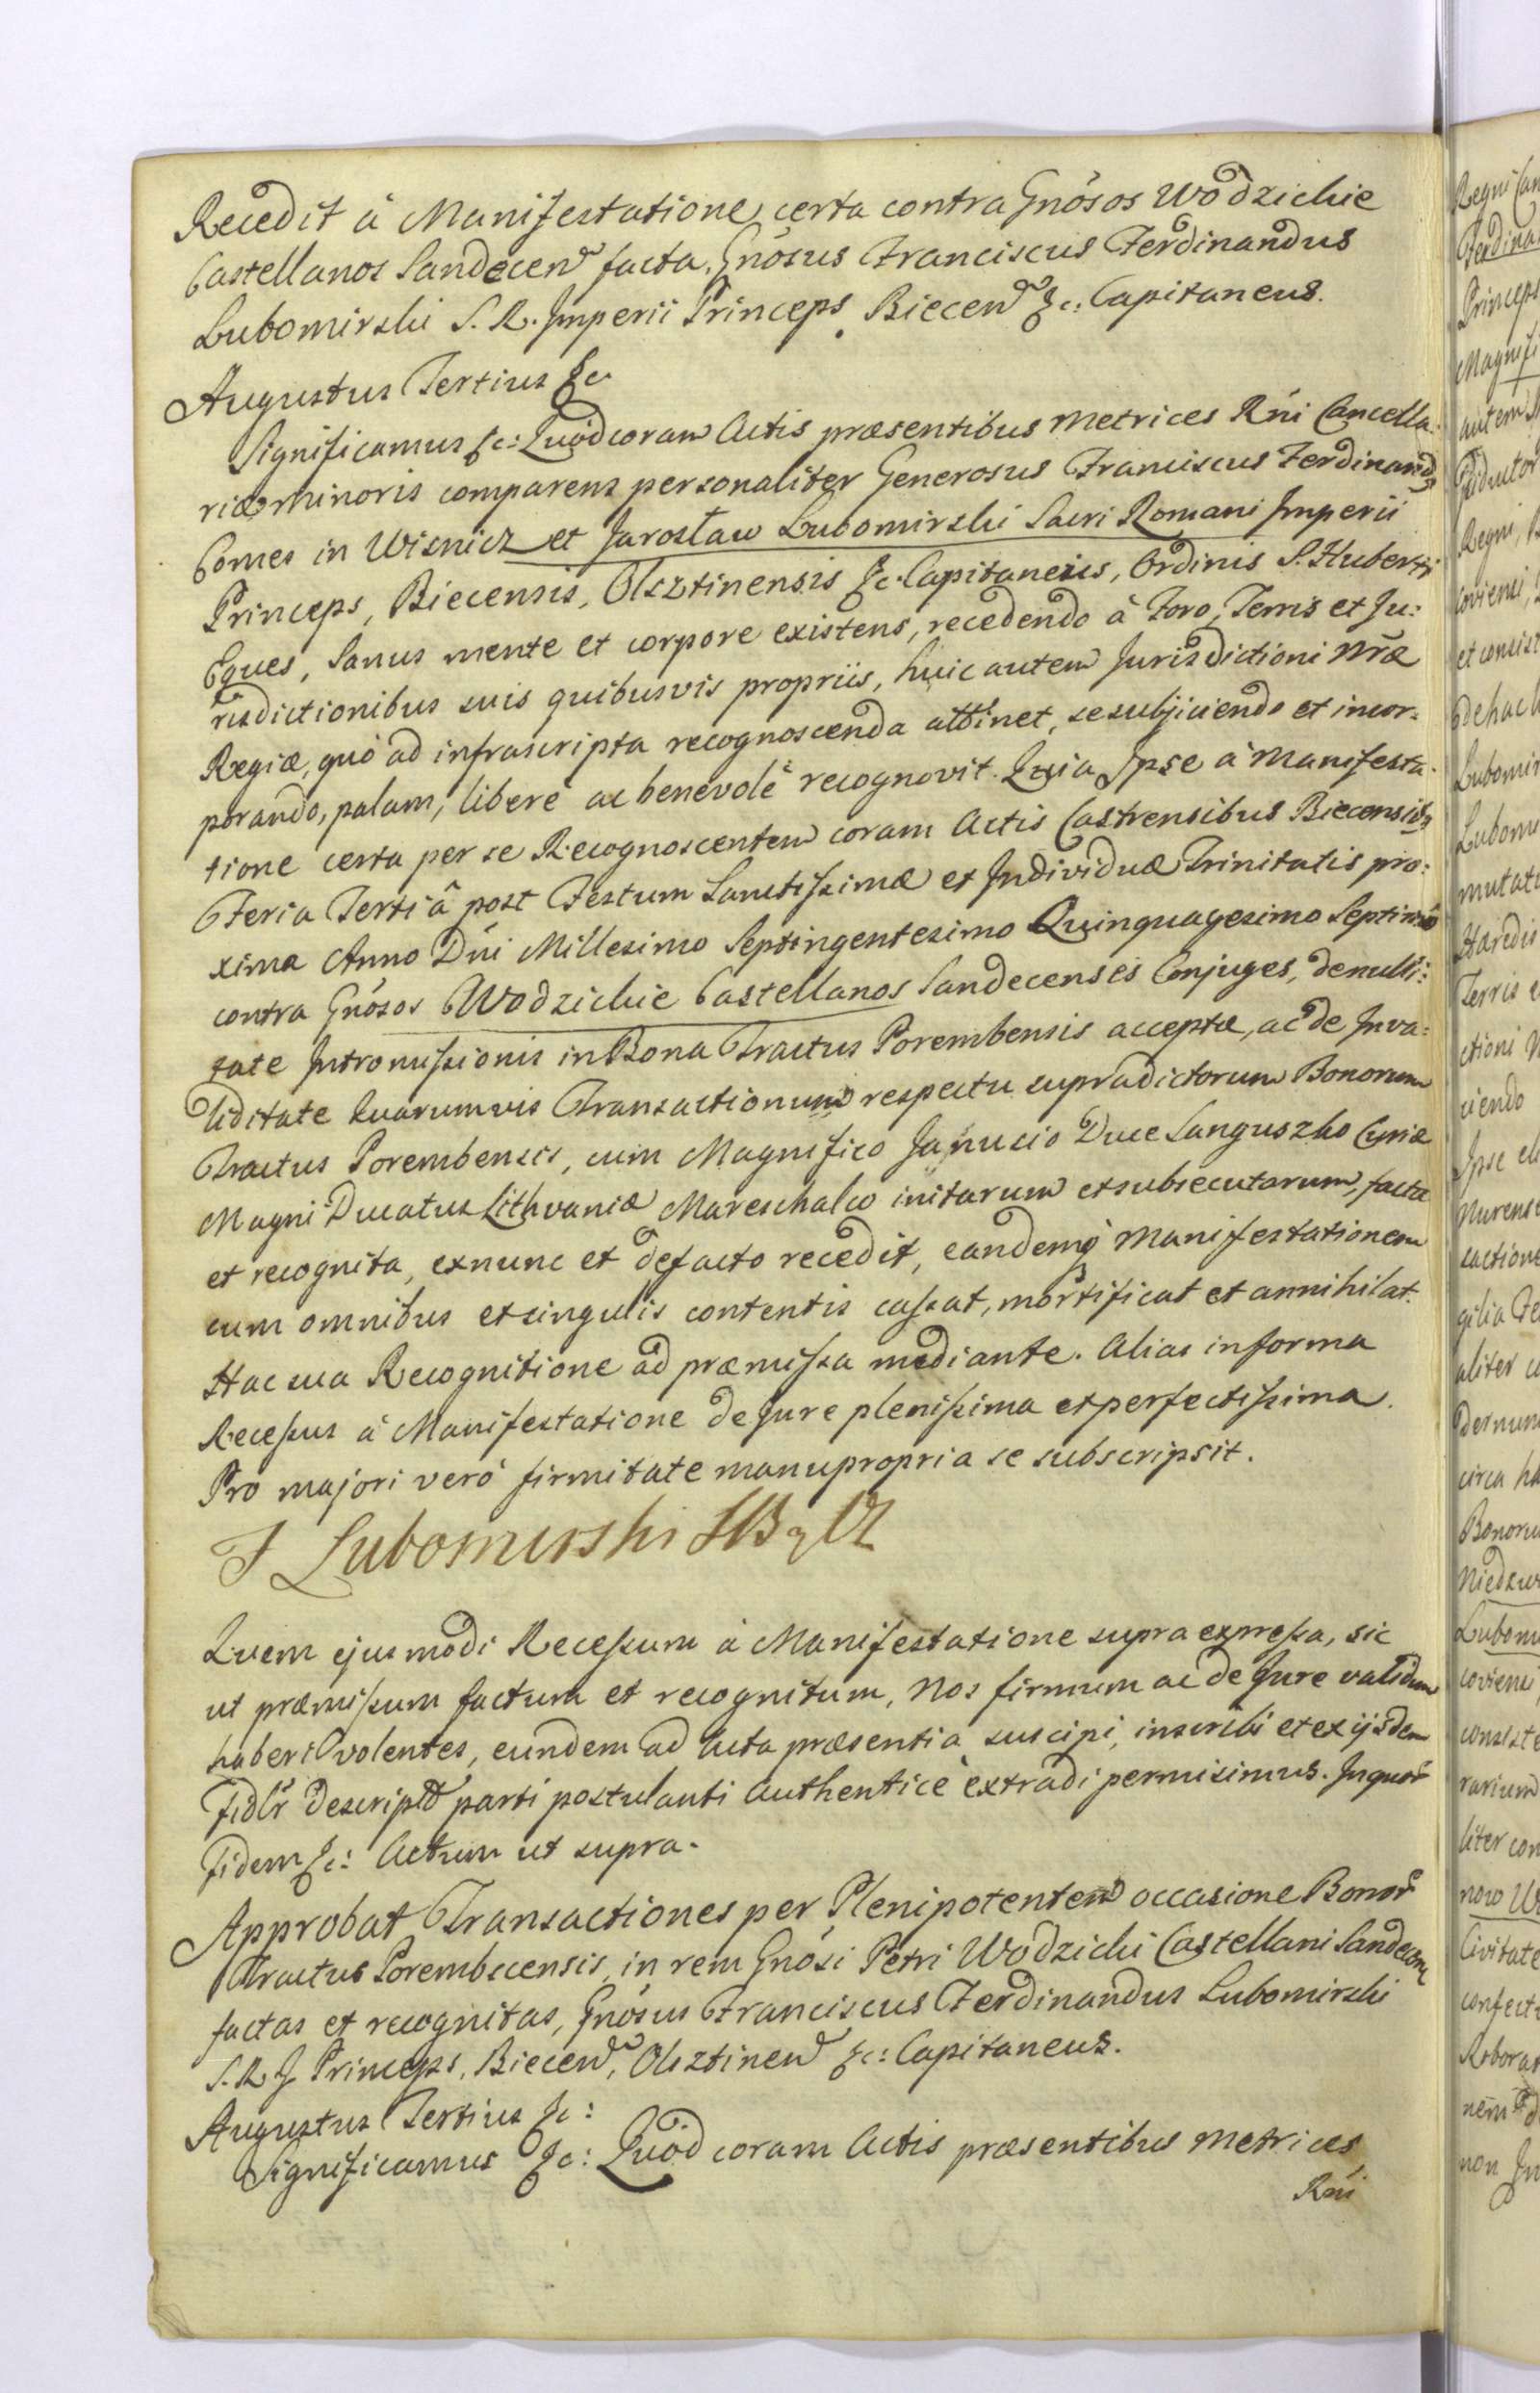 Recedit à Manifestatione certa contra Gnósos Wodzickie
Castellanos Sandecen facta. Gnósus Franciscus Ferdinandus
Lubomirski S. R. Imperii Princeps Biecen &c: Capitaneus.
Augustus Tertius &c
Significamus &c: Quòd coram Actis præsentibus Metrices Rńi Cancella:
riæ minoris comparens personaliter Generosus Franciscus Ferdinandg
Comes in Wisnicz et Jarosław Lubomirski Sacri Romani Imperii
Princeps, Biecensis, Olsztinensis &c. Capitaneus, Ordinis S. Huberti
Eques, Sanus mente et corpore existens, recedendo à Foro, Terris et Ju:
risdictionibus suis quibusvis propriis, huic autem Jurisdictioni Nrae
Regiæ, quò ad infrascripta recognoscenda attinet, se subjiciendo et incor:
porando, palam, liberè ac benevolè recognovit. Quia Ipse à Manifesta:
tione certa per se Recognoscentem coram Actis Castrensibus Biecensibg
Feria Tertiâ post Festum Sanctissimæ et Individuæ Trinitatis pro:
xima Anno Dńi Millesimo Septingentesimo Quinquagesimo Septimo
contra Gnósos Wodzickie Castellanos Sandecenses Conjuges, de nulli:
tate Intromissionis in Bona Tractus Porembensis acceptæ, ac de Inva:
liditate Quarumvis Transactionum respectu supradictorum Bonorum
Tractus Porembensis, cum Magnifico Janucio Duce Sanguszko Curiæ
Magni Ducatus Lithvaniæ Mareschalco initarum et subsecutarum, facta
et recognita, exnunc et defacto recedit, eandemq Manifestationem
cum omnibus et singulis contentis cassat, mortificat et annihilat.
Hac sua Recognitione ad præmissa mediante. Alias in forma
Recessus à Manifestatione de Jure plenissima et perfectissima.
Pro majori verò firmitate manu propria se subscripsit.
F Lubomirski
Quem ejusmodi Recessum à Manifestatione supra expressa, sic
ut præmissum factum et recognitum, Nos firmum ac de Jure validum
haberi volentes, eundem ad Acta præsentia suscipi, inscribi et ex ijsdem
Fidlr descriptū parti postulanti Authenticè extradi permisimus. In quor
Fidem &c: Actum ut supra.
Approbat Transactiones per Plenipotentem occasione Bonor
Tractus Porembscensis, in rem Gnósi Petri Wodzicki Castellani Sandecen
factas et recognitas, Gnósus Franciscus Ferdinandus Lubomirski
S. R. J Princeps, Biecen, Olsztinen &c: Capitaneus.
Augustus Tertius &c:
Significamus &c: Quòd coram Actis præsentibus Metrices
Rńi